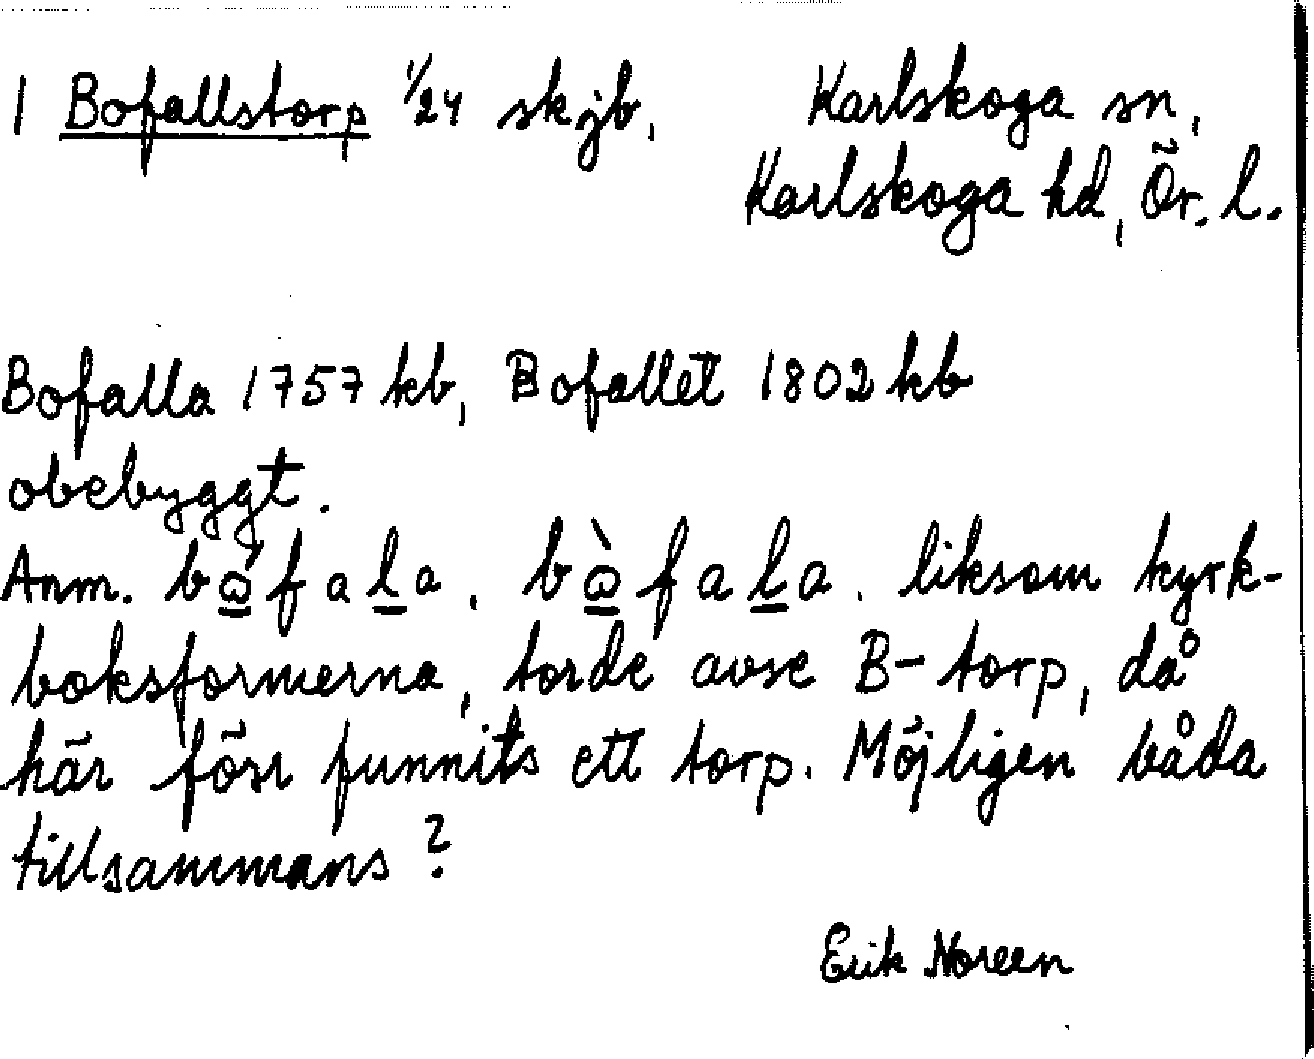 1 Bofallstorp 1/24 skjb, Karlskoga sn,
Karlskoga hd, Ör. l.
Bofalla 1757 kb, Bofallet 1802 kb
obebyggt.
Anm. bǫ́fala, bǫ̀fala, liksom kyrk-
boksformerna, torde avse B-torp, då
här förr funnits ett torp. Möjligen båda
tillsammans?
Erik Noreen